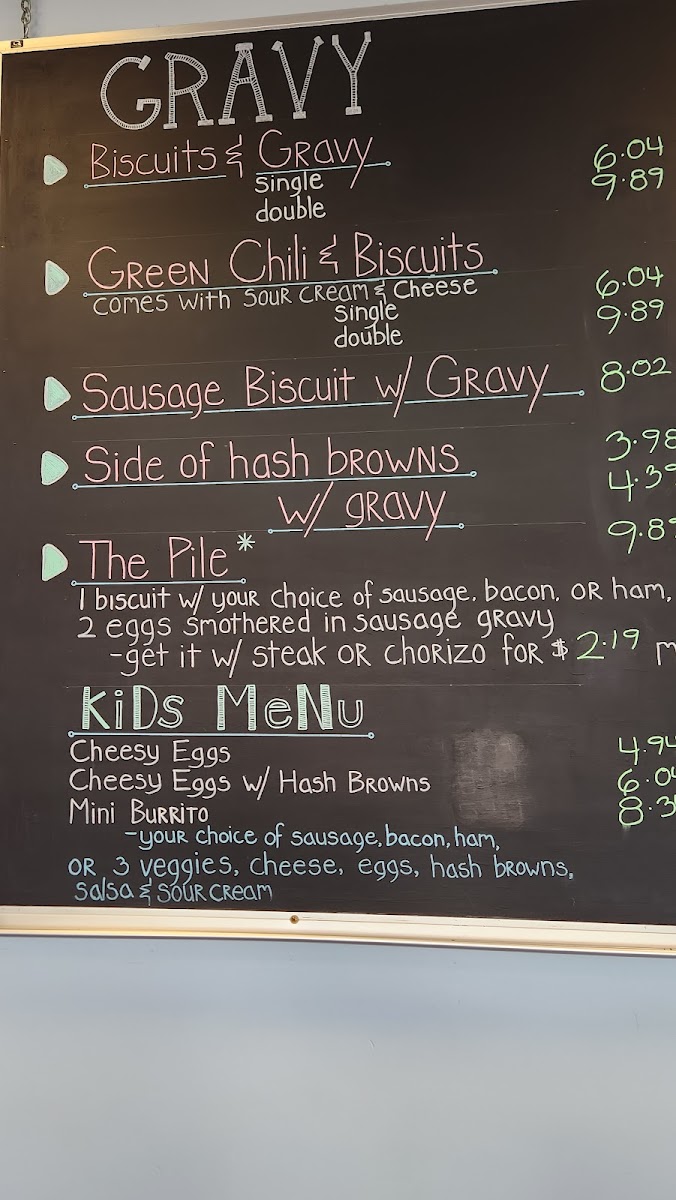 GRAVY
Biscuits & Gravy 6.04
single 9.89
double
Green Chili & Biscuits
comes with sour cream & cheese 6.04
single 9.89
double
Sausage Biscuit w/ Gravy 8.02
Side of hash browns 3.98
w/ gravy 4.39
The Pile* 9.89
1 biscuit w/ your choice of sausage, bacon, or ham,
2 eggs smothered in sausage gravy
-get it w/ steak or chorizo for $2.19 m
Kids Menu
Cheesy Eggs 4.94
Cheesy Eggs w/ Hash Browns 6.04
Mini Burrito 8.3
-your choice of sausage, bacon, ham,
or 3 veggies, cheese, eggs, hash browns,
salsa & sour cream